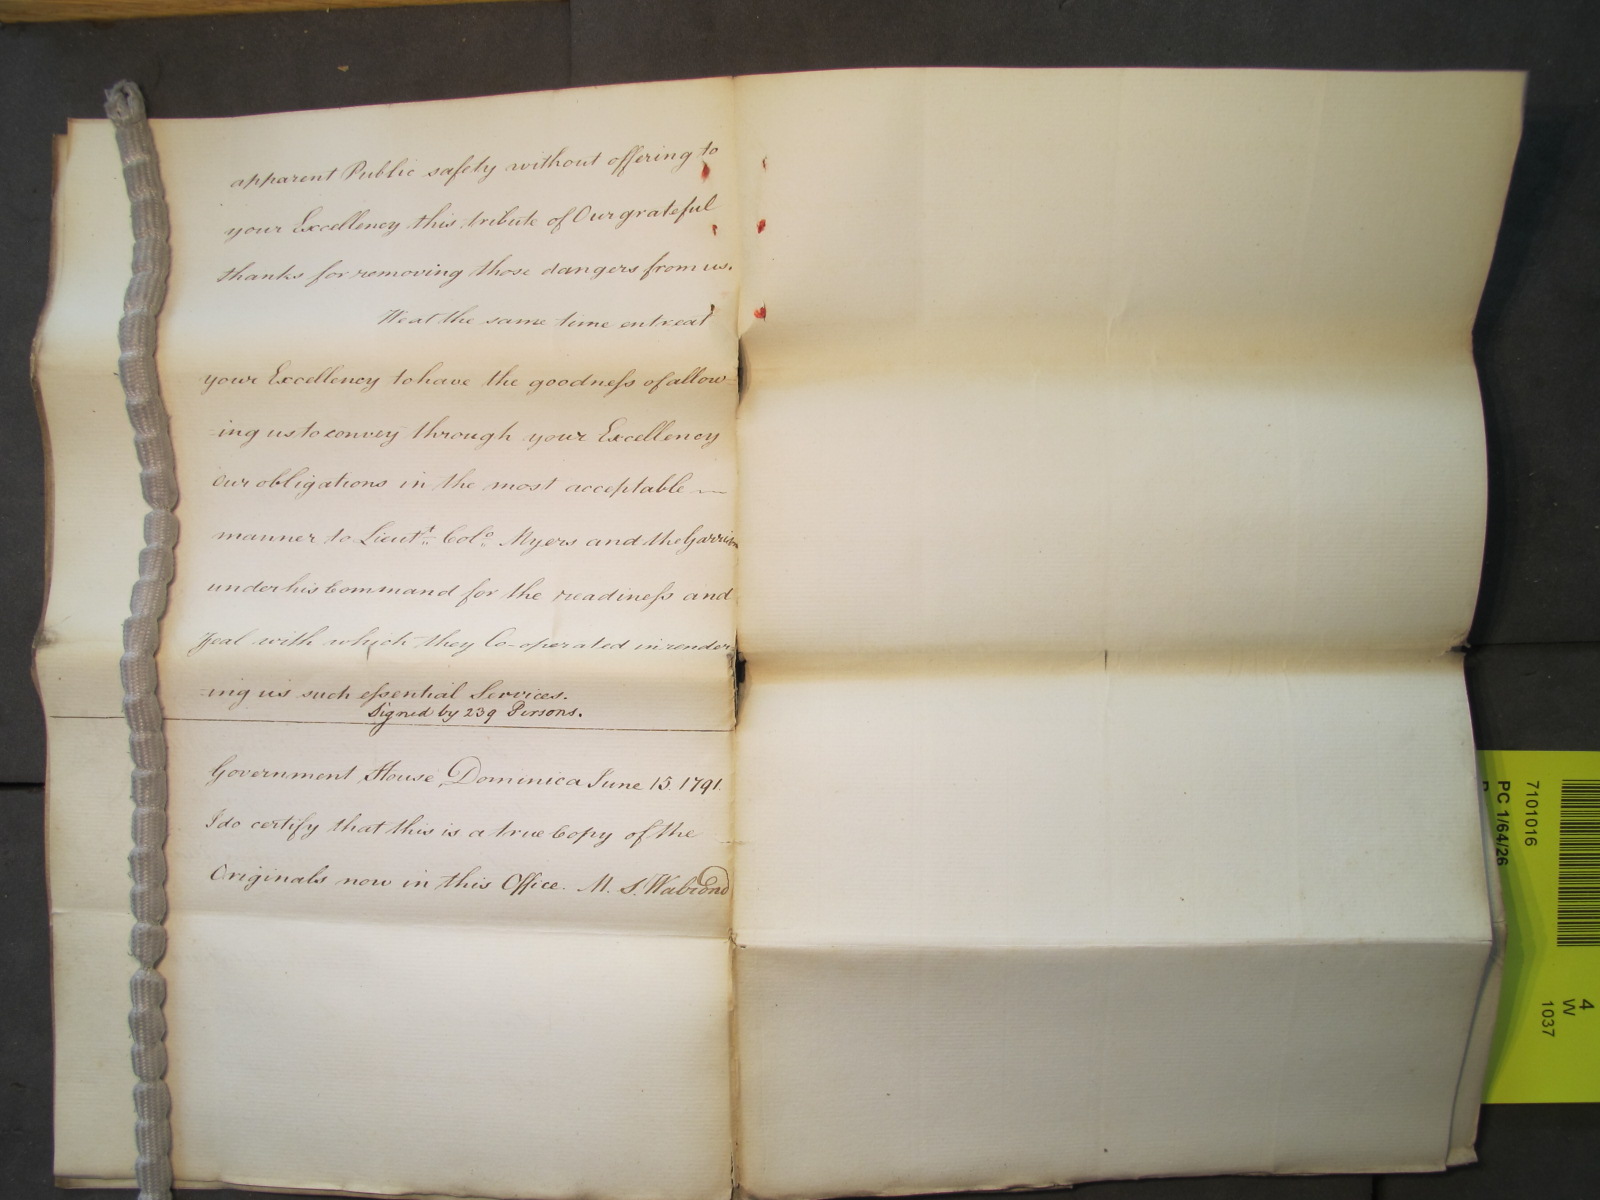 apparent Public safety without offering to
your Excellency this tribute of Our grateful
thanks for removing those dangers from us.
We at the same time entreat
your Excellency to have the goodneſs of allow-
-ing us to convey through your Excellency
Our obligations in the most acceptable —
manner to Lieut.t Col.o Myers and the Garrison
under his Command for the readineſs and
Zeal with which they Co-operated in render-
-ing us such eſsential Services.
Signed by 239 Persons.
Government House Dominica June 15. 1791.
I do certify that this is a true Copy of the
Originals now in this Office. M. S. Wabrond
7101016
PC 1/64/26
4
W
1037